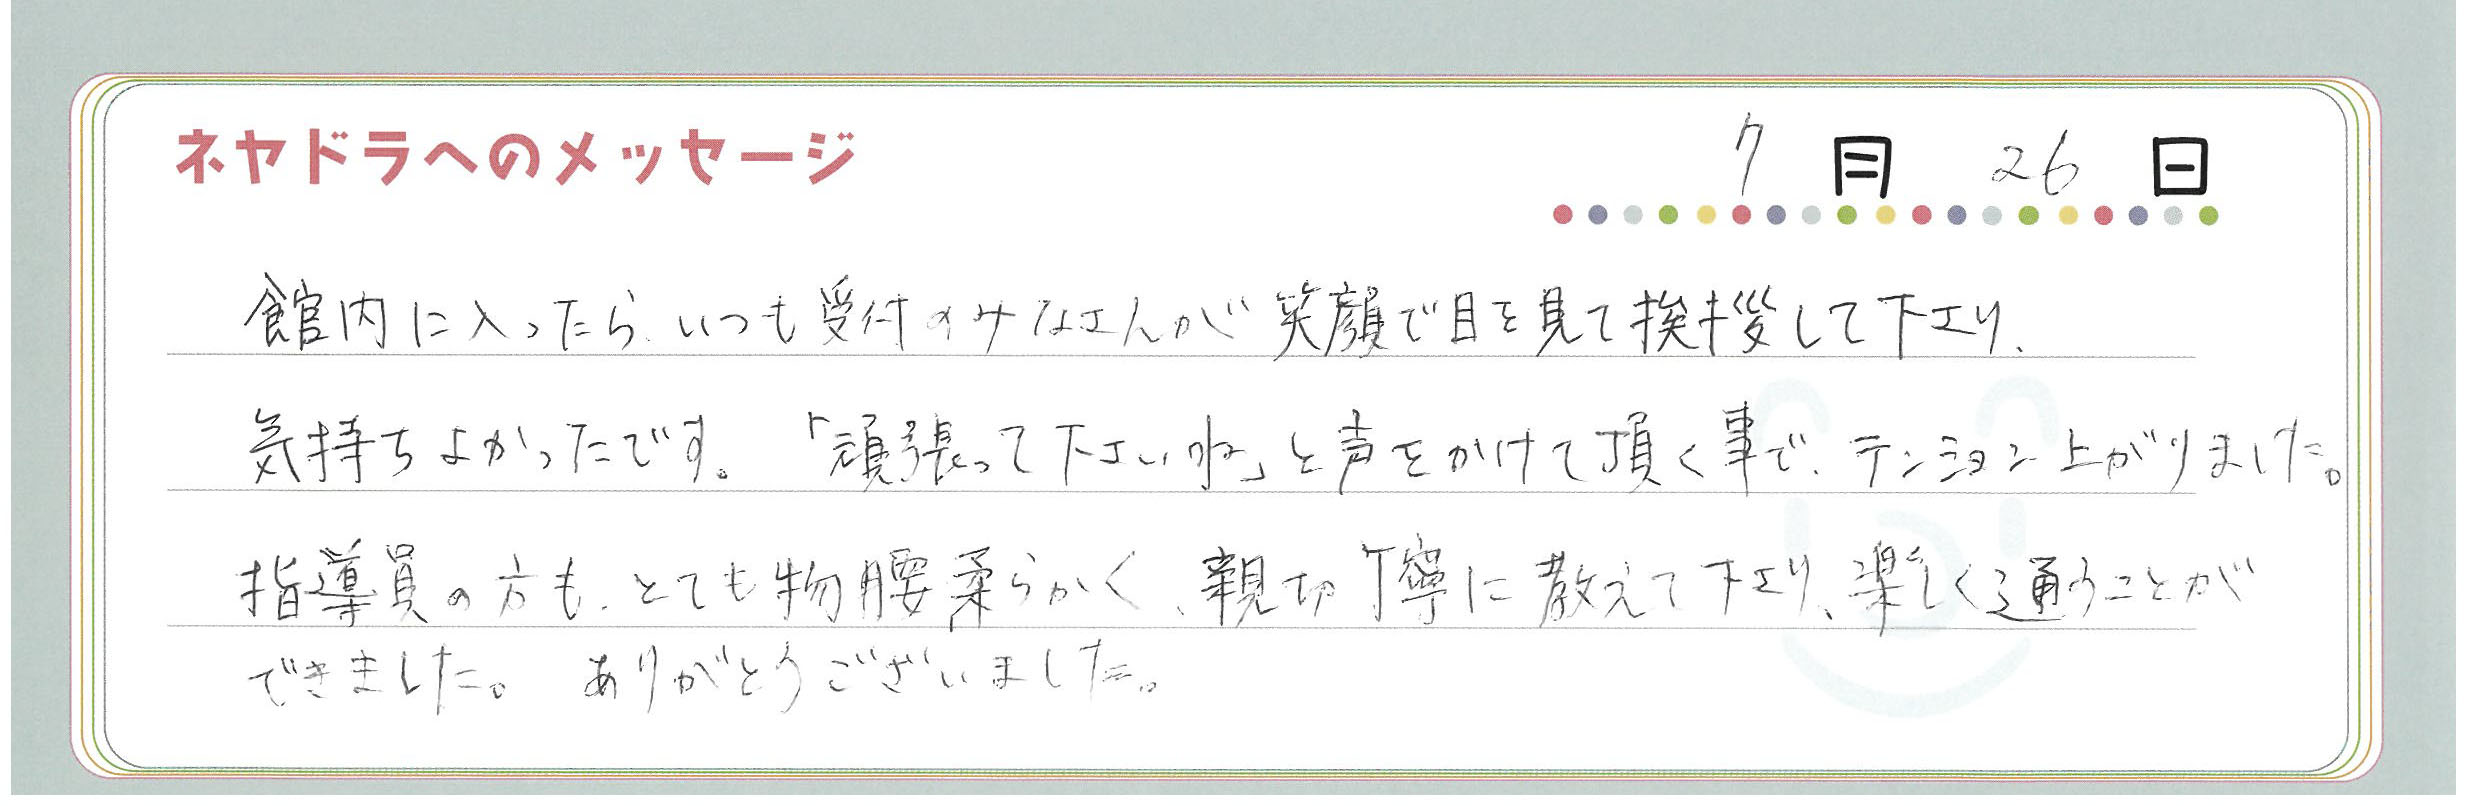 ネヤドラへのメッセージ
7月26日
館内に入ったら、いつも受付のみなさんが笑顔で目を見て挨拶して下さり、
気持ちよかったです。「頑張って下さいね」と声をかけて頂く事で、テンション上がりました。
指導員の方も、とても物腰柔らかく、親切丁寧に教えて下さり、楽しく通うことが
できました。ありがとうございました。